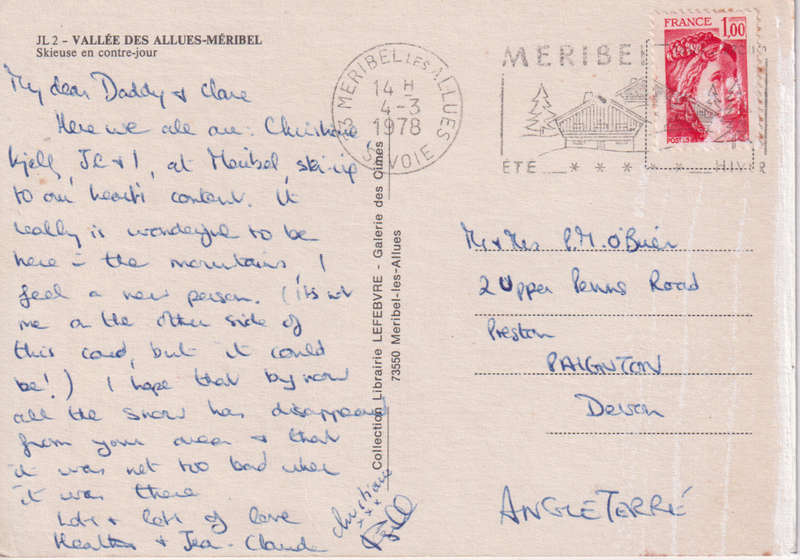 JL 2 - VALLÉE DES ALLUES-MÉRIBEL
Skieuse en contre-jour
My dear Daddy & Clare
Here we all are: Christiane
Kjell, J.C & I, at Meribel, ski-ing
to our heart's content. It
really is wonderful to be
here in the mountains. I
feel a new person. (it's not
me on the other side of
this card, but it could
be!) I hope that by now
all the snow has disappeared
from your area & that
it was not too bad when
it was there
Lots & lots of love
Heather & Jean-Claude
Christiane
x x x
Kjell
Collection Librairie LEFEBVRE - Galerie des Cimes
73550 Meribel-les-Allues
73 MERIBEL LES ALLUES
14 H
4-3
1978
SAVOIE
MERIBEL
ÉTÉ * * * * * HIVER
FRANCE 1,00
POSTES
Mr & Mrs P.M. O'Brien
2 Upper Penns Road
Preston
PAIGNTON
Devon
ANGLETERRE